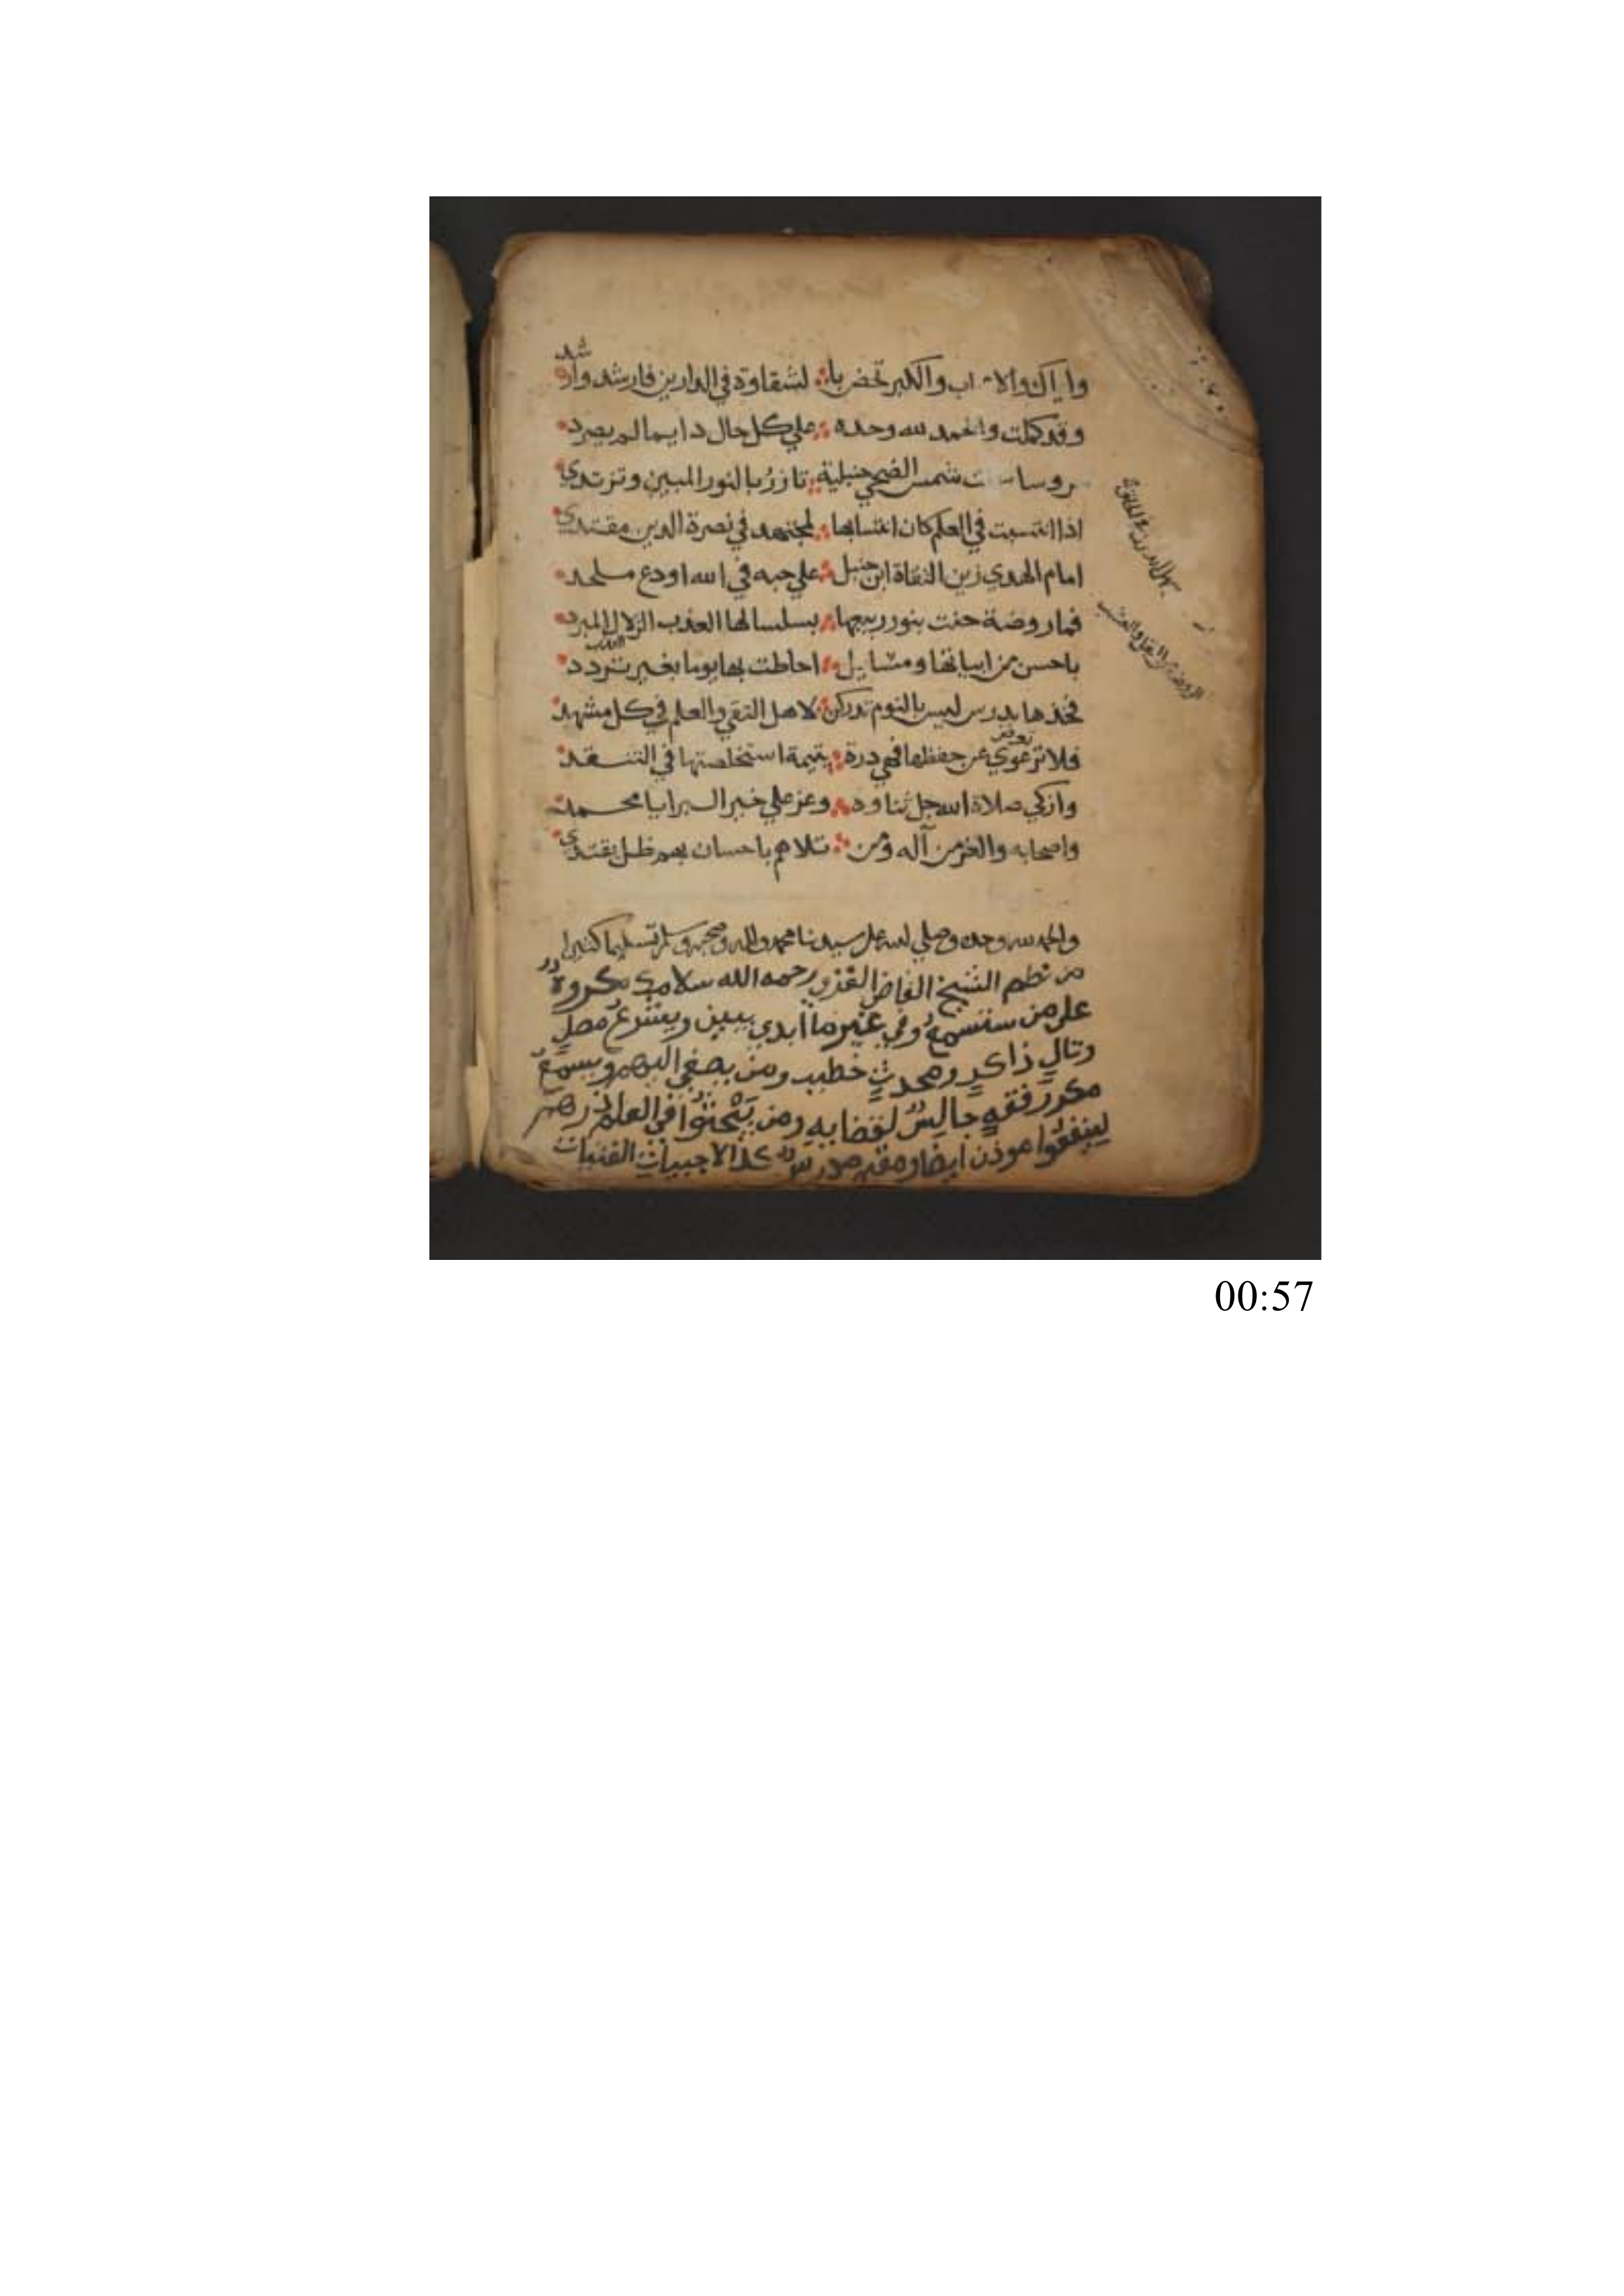 واياك والا اب والكبر تحض با لشقاوة في الدارين فارشد وار
شد
وقد كملت والحمد لله وحده على كل حال دايما لم يصرد
شمس الضحى حنبلية تازر بالنور المبين وترتدي
اذا انتسبت في العلم كان انتسابها لمجتهد في نصرة الدين مقتدي
امام الهدى زين التقاة ابن حنبل على حبه في الله اودع ملحد
فما روضة حفت بنور ربيعها بسلسالها العذب الزلال المبرد
باحسن من ابياتها ومسايل احاطت بها يوما بغير تردد
فخذها بدرس ليس بالنوم تدركن لاهل التقى والعلم في كل مشهد
فلا ترعوي عن حفظها فهي درة يتيمة استخلصتها في التنقد
وازكى صلاة الله جل ثناوه وعز على خير البرايا محمد
واصحابه والغر من آله ومن تلاهم باحسان بهم ظل يقتدي
والحمد لله وحده وصلى الله على سيدنا محمد واله وصحبه وسلم تسليما كثيرا
من نظم الشيخ الفاضل الغزي رحمه الله سلامك مكروه
على من ستسمع ومن غير ما ابدي يبين ويشرع مصل
وتال ذاكر ومحدث خطيب ومن يصغي اليهم ويسمع
مكرر فقه جالس لقضايه ومن يبحثوا في العلم ذرهم
لينفعوا موذن ايضا ومقيم مدرس كذا الاجنبيات الفتيات
00:57